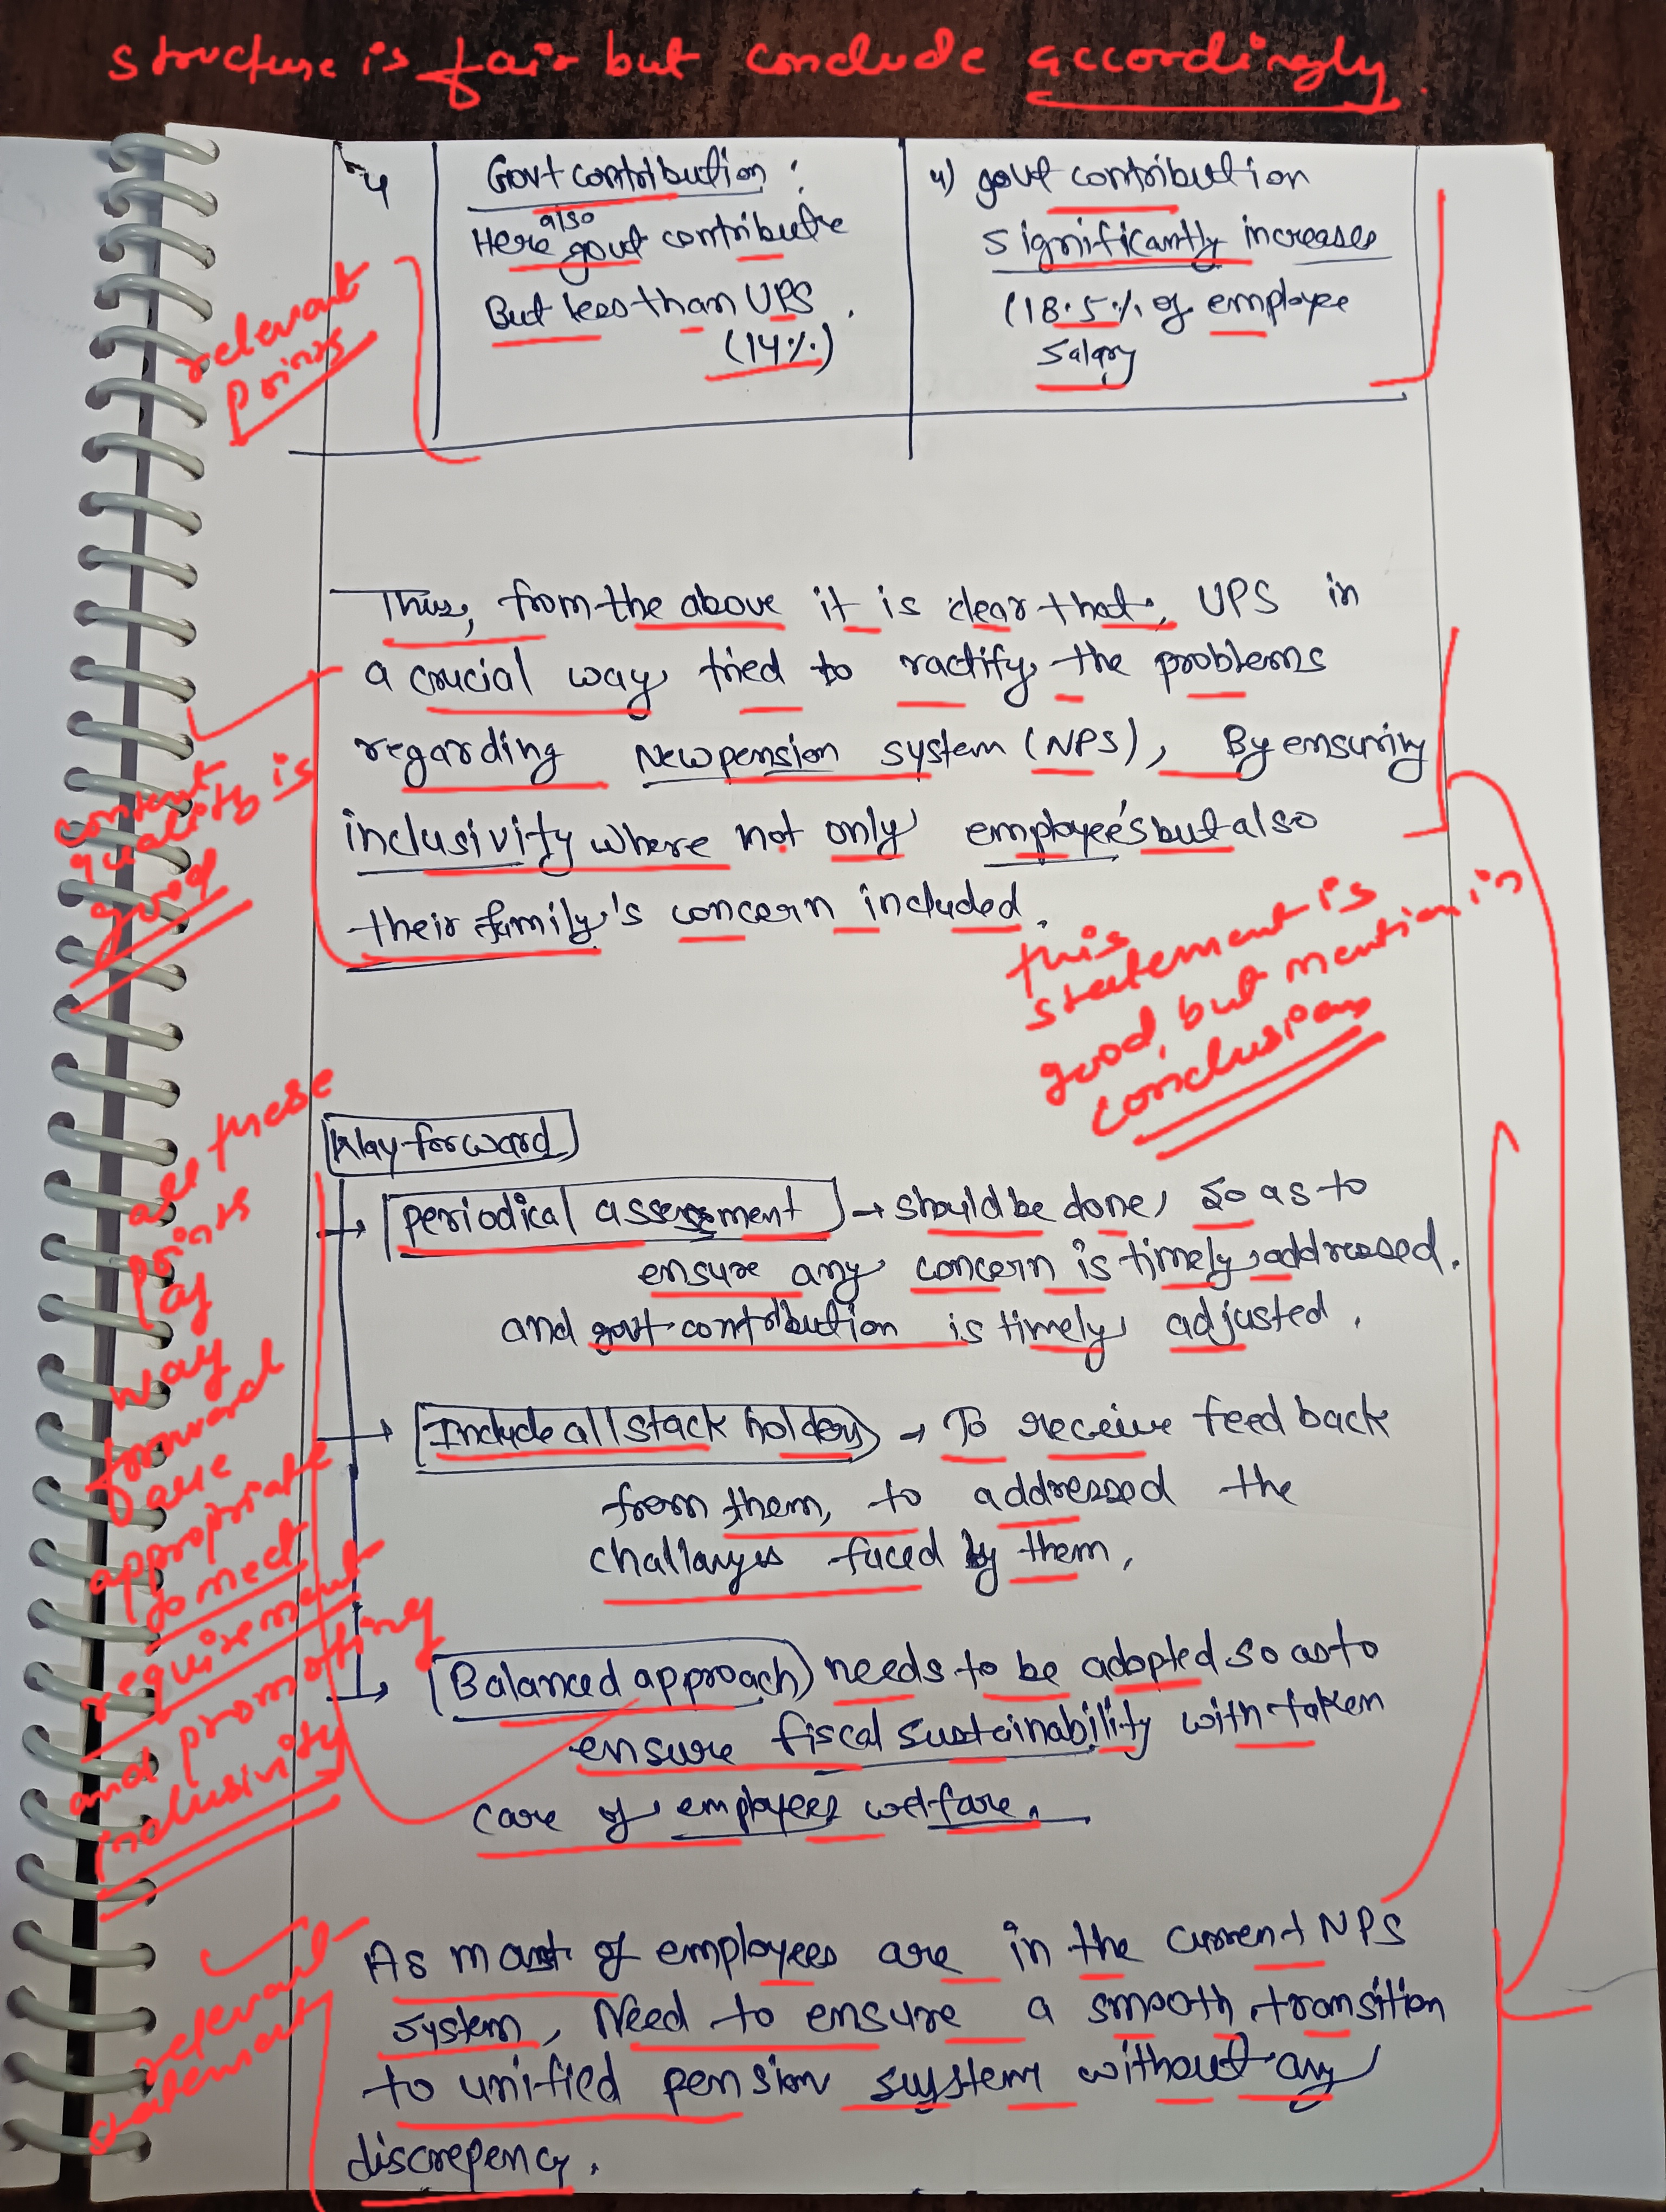 structure is fair but conclude accordingly.
4
Govt contribution :
also
Here govt contribute
But less than UPS.
(14%)
4) govt contribution
significantly increases
(18.5% of employee
salary
relevant
points
Thus, from the above it is clear that, UPS in
a crucial way tried to ractify the problems
regarding New pension system (NPS), By ensuring
inclusivity where not only employee's but also
their family's concern included.
content
quality is
good
this
statement is
good, but mention in
conclusion
Way forward
periodical assessment → should be done, so as to
ensure any concern is timely addressed.
and govt contribution is timely adjusted.
Include all stack holders → To receive feed back
from them, to addressed the
challanges faced by them,
Balanced approach needs to be adopted so as to
ensure fiscal sustainability with taken
care of employees welfare.
all these
points
of
way
forward
are
appropriate
to meet
requirement
and promoting
inclusivity
As most of employees are in the current NPS
system, Need to ensure a smooth transition
to unified pension system without any
discrepency.
relevant
statement